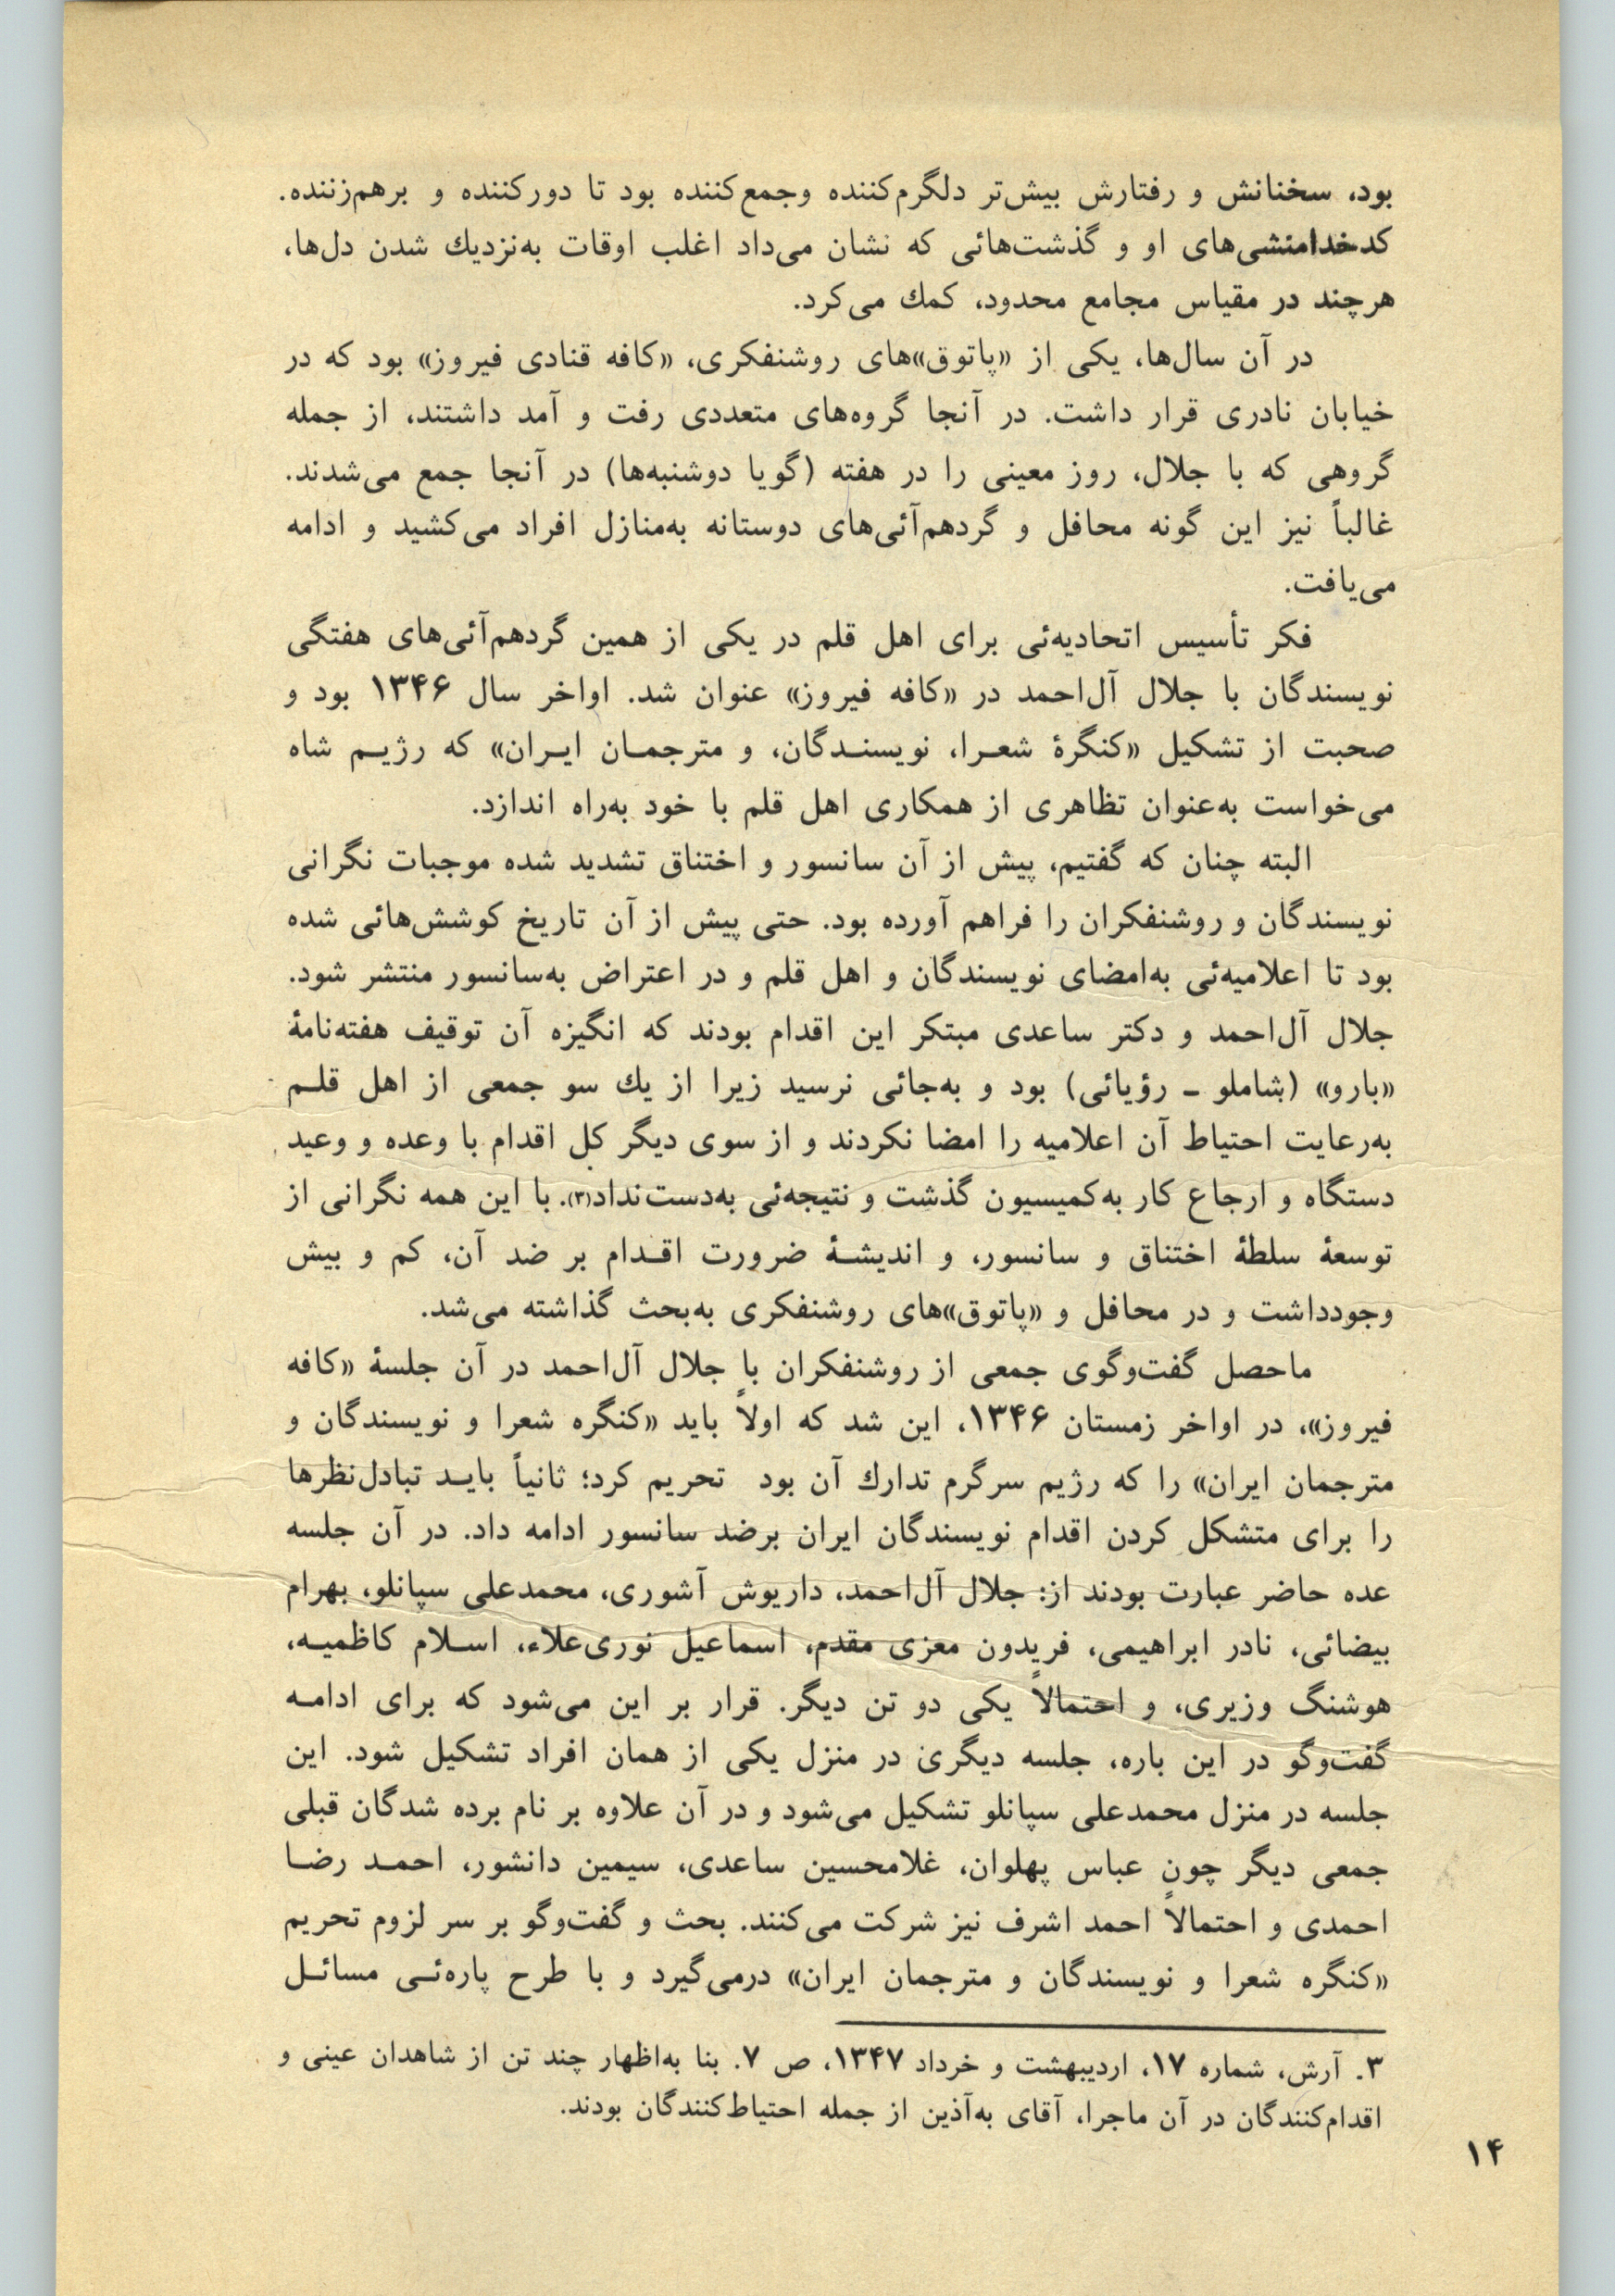 بود، سخنانش و رفتارش بیش‌تر دلگرم‌کننده وجمع‌کننده بود تا دورکننده و برهم‌زننده.
کدخدامنشی‌های او و گذشت‌هائی که نشان می‌داد اغلب اوقات به‌نزدیك شدن دل‌ها،
هرچند در مقیاس مجامع محدود، کمك می‌کرد.
در آن سال‌ها، یکی از «پاتوق»های روشنفکری، «کافه قنادی فیروز» بود که در
خیابان نادری قرار داشت. در آنجا گروه‌های متعددی رفت و آمد داشتند، از جمله
گروهی که با جلال، روز معینی را در هفته (گویا دوشنبه‌ها) در آنجا جمع می‌شدند.
غالباً نیز این گونه محافل و گردهم‌آئی‌های دوستانه به‌منازل افراد می‌کشید و ادامه
می‌یافت.
فکر تأسیس اتحادیه‌ئی برای اهل قلم در یکی از همین گردهم‌آئی‌های هفتگی
نویسندگان با جلال آل‌احمد در «کافه فیروز» عنوان شد. اواخر سال ۱۳۴۶ بود و
صحبت از تشکیل «کنگرهٔ شعـرا، نویسنـدگان، و مترجمـان ایـران» که رژیـم شاه
می‌خواست به‌عنوان تظاهری از همکاری اهل قلم با خود به‌راه اندازد.
البته چنان که گفتیم، پیش از آن سانسور و اختناق تشدید شده موجبات نگرانی
نویسندگان و روشنفکران را فراهم آورده بود. حتی پیش از آن تاریخ کوشش‌هائی شده
بود تا اعلامیه‌ئی به‌امضای نویسندگان و اهل قلم و در اعتراض به‌سانسور منتشر شود.
جلال آل‌احمد و دکتر ساعدی مبتکر این اقدام بودند که انگیزه آن توقیف هفته‌نامهٔ
«بارو» (شاملو ـ رؤیائی) بود و به‌جائی نرسید زیرا از یك سو جمعی از اهل قلـم
به‌رعایت احتیاط آن اعلامیه را امضا نکردند و از سوی دیگر کل اقدام با وعده و وعید
دستگاه و ارجاع کار به‌کمیسیون گذشت و نتیجه‌ئی به‌دست‌نداد(۳). با این همه نگرانی از
توسعهٔ سلطهٔ اختناق و سانسور، و اندیشـهٔ ضرورت اقـدام بر ضد آن، کم و بیش
وجودداشت و در محافل و «پاتوق»های روشنفکری به‌بحث گذاشته می‌شد.
ماحصل گفت‌وگوی جمعی از روشنفکران با جلال آل‌احمد در آن جلسهٔ «کافه
فیروز»، در اواخر زمستان ۱۳۴۶، این شد که اولاً باید «کنگره شعرا و نویسندگان و
مترجمان ایران» را که رژیم سرگرم تدارك آن بود تحریم کرد؛ ثانیاً بایـد تبادل‌نظرها
را برای متشکل کردن اقدام نویسندگان ایران برضد سانسور ادامه داد. در آن جلسه
عده حاضر عبارت بودند از: جلال آل‌احمد، داریوش آشوری، محمدعلی سپانلو، بهرام
بیضائی، نادر ابراهیمی، فریدون معزی مقدم، اسماعیل نوری‌علاء، اسـلام کاظمیـه،
هوشنگ وزیری، و احتمالاً یکی دو تن دیگر. قرار بر این می‌شود که برای ادامـه
گفت‌وگو در این باره، جلسه دیگری در منزل یکی از همان افراد تشکیل شود. این
جلسه در منزل محمدعلی سپانلو تشکیل می‌شود و در آن علاوه بر نام برده شدگان قبلی
جمعی دیگر چون عباس پهلوان، غلامحسین ساعدی، سیمین دانشور، احمـد رضـا
احمدی و احتمالاً احمد اشرف نیز شرکت می‌کنند. بحث و گفت‌وگو بر سر لزوم تحریم
«کنگره شعرا و نویسندگان و مترجمان ایران» درمی‌گیرد و با طرح پاره‌ئـی مسائـل
۳. آرش، شماره ۱۷، اردیبهشت و خرداد ۱۳۴۷، ص ۷. بنا به‌اظهار چند تن از شاهدان عینی و
اقدام‌کنندگان در آن ماجرا، آقای به‌آذین از جمله احتیاط‌کنندگان بودند.
۱۴